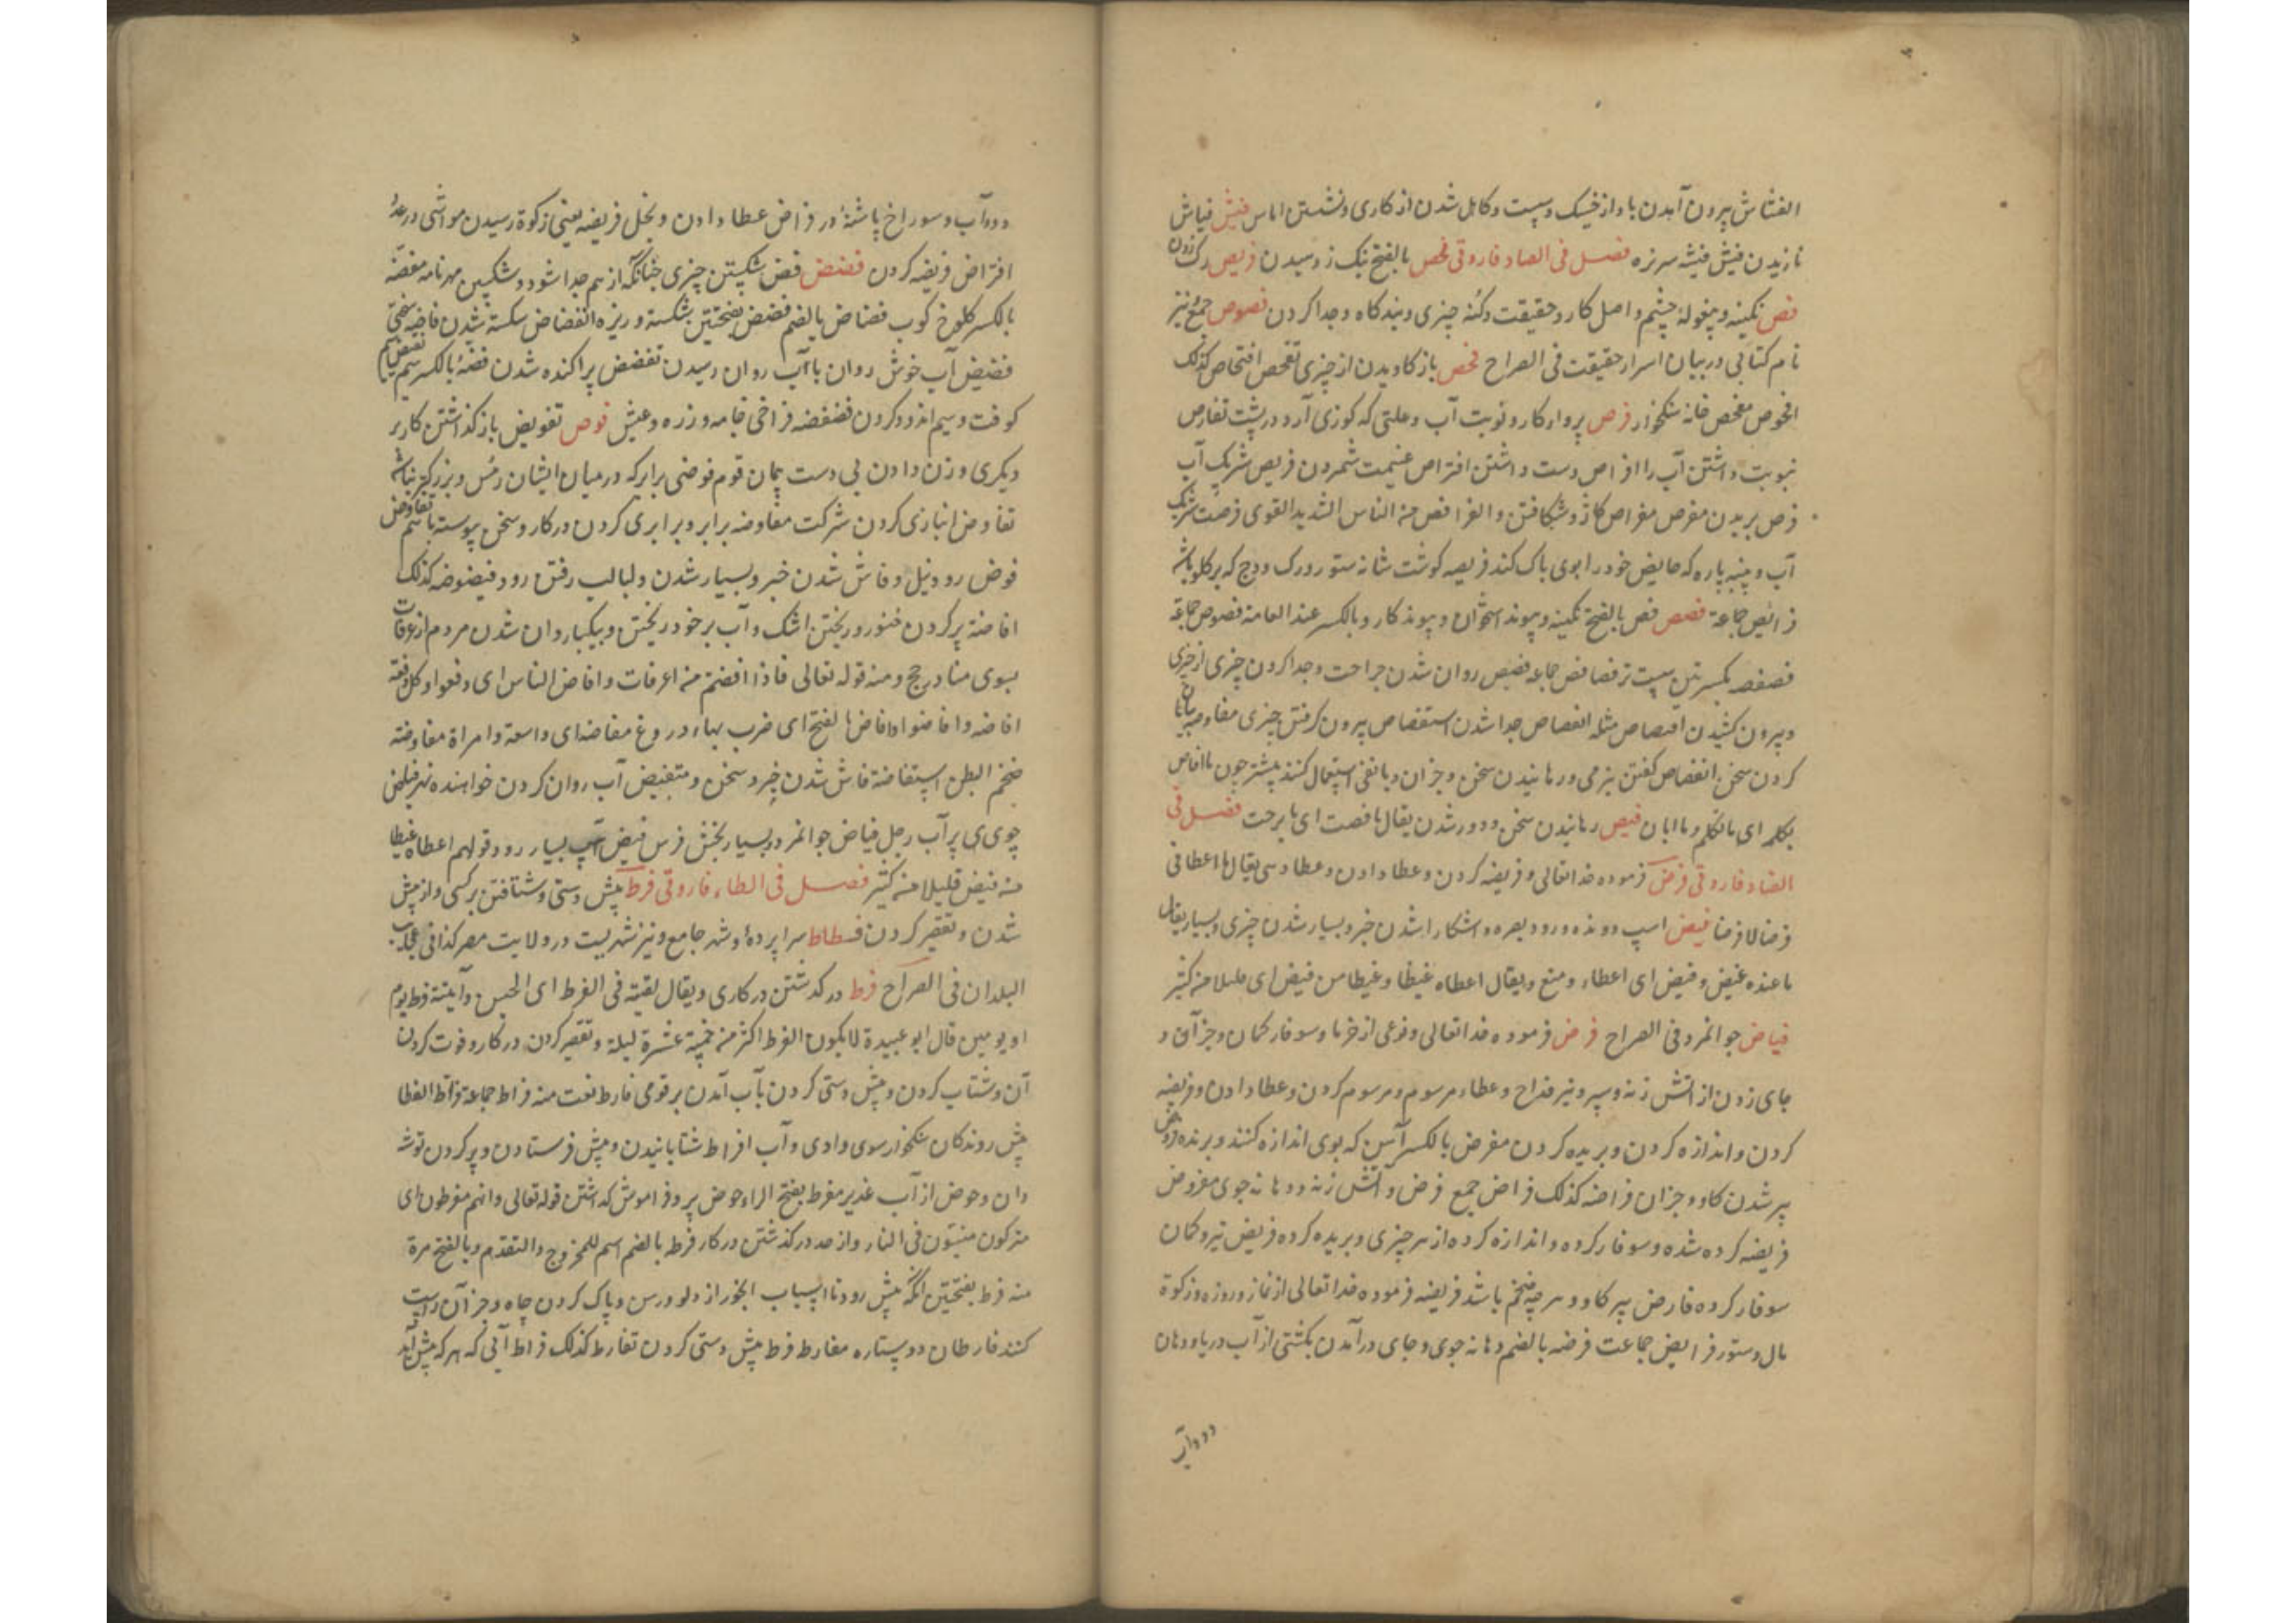 الفشاش پیرون آمدن باد از خیسک و سست و کاهل شدن از کاری و نشستن اماس فیش فیاش
نازیدن فیش فیشه سرنره فصل فی الصاد فاروقی فحص بالفتح نیک زدسیدن فریص رک زدن
فص نکینه و پیغوله چشم و اصل کار و حقیقت و کنه چیزی و بندگاه و جدا کردن فصوص جمع نیز
نام کتابی در بیان اسرار حقیقت فی الصراح فحص باز کاویدن از چیزی تفحص افتحاص کذلک
افحوص مفحص خانه سنکخوار فرص پروار کار و نوبت آب و علتی که کوزی آرد در پشت تفارص
بنوبت داشتن آب را افراص دست داشتن افتراص غنیمت شمردن فریص شریک آب
فرص بریدن مفرص مفراص کاز و شکافتن و الفرافص من الناس الشدید القوی فرصت شربک
آب و پنبه پاره که حایض خود را بوی پاک کند فریصه کوشت شانه ستور و رک ودج که بر کلو باشد
فرائص جماعة فصص فص بالفتح نکینه و پیوند استخوان و پیوند کار و بالکسر عند العامة فصوص جماعة
فصفصه بکسرتین سپست تر فصافص جماعه فصیص روان شدن جراحت و جدا کردن چیزی از چیزی
و پیرون کشیدن افتصاص مثله انفصاص جدا شدن استفصاص پیرون کرفتن چیزی مفاوصه بیان
کردن سخن انفصاص کفتن بنرمی و رهانیدن سخن و جز آن و با نفی استعمال کنند پیشتر چون ما افاص
بکلمه ای ما تکلم و ما ابان فیص رهانیدن سخن و دور شدن یقال ما فصت ای ما برحت فصل فی
الضاد فاروقی فرض فرموده خدا تعالی و فریضه کردن و عطا دادن و عطا دسی یقال ما اعطانی
فرضا لا قرضا فیض اسپ دونده و رود بصره و اشکارا شدن خبر و بسیار شدن چیزی و بسیار یقال
ما عنده غیض و فیض ای اعطاء و منع و یقال اعطاه غیظا و غیطا من فیض ای قلیلا من کثیر
فیاض جوانمرد فی الصراح فرض فرموده خدا تعالی و نوعی از خرما و سوفار کمان و جز آن و
جای زدن از اتش زنه و سپر و تیر قداح و عطاء مرسوم و مرسوم کردن و عطا دادن و فریضه
کردن و اندازه کردن و بریده کردن مفرض بالکسر آهن که بوی اندازه کنند و برنده فروض
پیر شدن کاو و جز آن فراضه کذلک فراض جمع فرض و آتش زنه و دهانه جوی مفروض
فریضه کرده شده و سوفار کرده و اندازه کرده از هر چیزی و بریده کرده فریض تیر و کمان
سوفار کرده فارض پیر کاو و هر چه ضخم باشد فریضه فرموده خدا تعالی از نماز و روزه و زکوة
مال و ستور فرایض جماعت فرضه بالضم دهانه جوی و جای در آمدن بکشتی از آب دریا و دهان
دو دوات
دو دوات و سوراخ پاشنه در فراض عطا دادن و بخل فریضه یعنی زکوة رسیدن مواشی در عد
افتراض فریضه کردن فضض فض شکستن چیزی چنانکه از هم جدا شود و شکستن مهر نامه مفضه
بالکسر کلوخ کوب فضاض بالضم فضض بفتحتین شکسته و ریزه انفضاض شکسته شدن فاضه سختی
فضیض آب خوش روان با آب روان رسیدن تفضض پراکنده شدن فضة بالکسر سیم تفضیض
کوفت و سیم اندود کردن فضفضه فراخی جامه و زره و عیش فوض تفویض باز کذاشتن کار بر
دیکری و زن دادن بی دست پیمان قوم فوضی برابر که در میان ایشان رئیس و بزرکتر نباشد
تفاوض انبازی کردن شرکت مفاوضه برابر و برابری کردن در کار و سخن پیوسته با هم تفاوض
فوض رود نیل و فاش شدن خبر و بسیار شدن و لبالب رفتن رود فیضوضه کذلک
افاضة پر کردن و ریختن اشک و آب بر خود ریختن و بیکبار روان شدن مردم از عرفات
بسوی منا در حج و منه قوله تعالی فاذا افضتم من اعرفات و افاض الناس ای دفعوا و کل دفعة
افاضه و افاضوا و افاض بالفتح ای ضرب بهاء دروغ مفاضه ای واسعة و امراة مفاوضه
ضخم البطن استفاضة فاش شدن خبر و سخن و متفیض آب روان کردن خواهنده نهر فیاض
جوی پر آب رجل فیاض جوانمرد و بسیار بخشش فرس فیض اسپ بسیار رو و قولهم اعطاه غیظا
من فیض قلیلا من کثیر فصل فی الطاء فاروقی فرط پیش دستی و شتافتن بر کسی و از پیش
شدن و تقصیر کردن فسطاط سراپرده و شهر جامع و نیز شهریست در ولایت مصر کذافی عجایب
البلدان فی الصراح فرط در کذشتن در کاری و یقال لقیته فی الفرط ای الحین و آتیته فرط یوم
او یومین قال ابو عبیدة لا یکون الفرط اکثر من خمسة عشرة لیلة و تقصیر کردن در کار و فوت کردن
آن و شتاب کردن و پیش دستی کردن بآب آمدن بر قومی فارط نعت منه فراط جماعة فراط القطا
پیش روندکان سنکخوار سوی وادی و آب افراط شتابانیدن و پیش فرستادن و پر کردن توشه
دان و حوض از آب غدیر مفرط بفتح الراء حوض پر و فراموش کذاشتن قوله تعالی و انهم مفرطون ای
متروکون منسیون فی النار و از حد در کذشتن در کار فرطه بالضم اسم للخروج و التقدم و بالفتح مرة
منه فرط بفتحتین انکه پیش رود تا اسباب ابخور از دلو و رسن و پاک کردن چاه و جز آن راست
کنند فارطان دو ستاره مفارط فرط پیش دستی کردن تفارط کذلک فراط آبی که هر که پیش آید